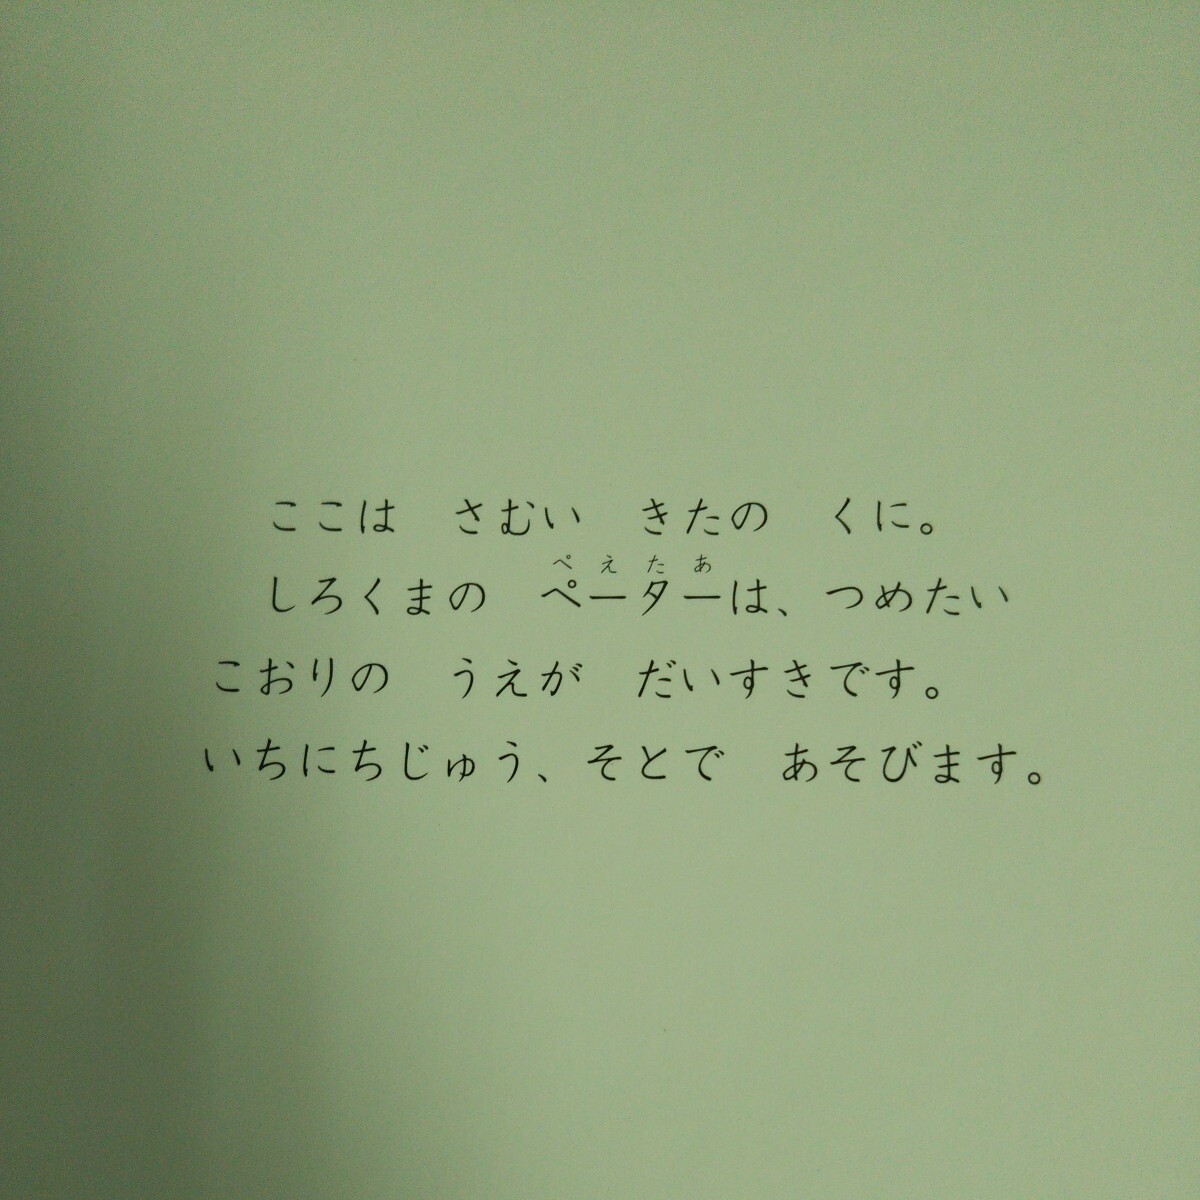 ここは　さむい　きたの　くに。
ぺえたあ
しろくまの　ペーターは、つめたい
こおりの　うえが　だいすきです。
いちにちじゅう、そとで　あそびます。